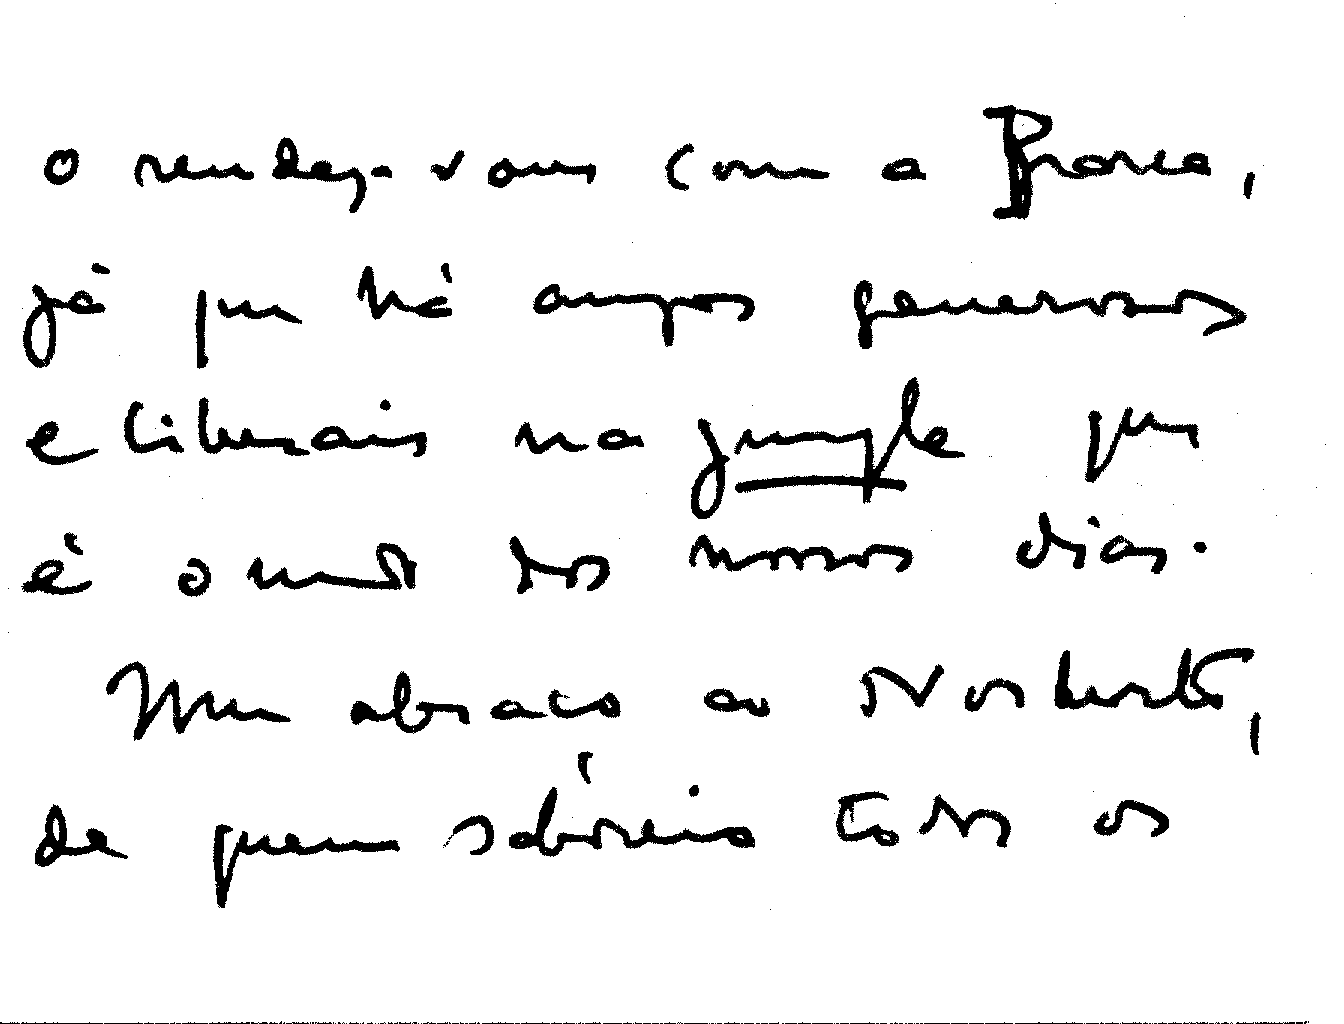 o rendez-vous com a Prosea,
já que há amigos generosos
e liberais na jungle que
é o mundo dos nossos dias.
Meu abraço ao Norberto,
de quem saboreio todos os